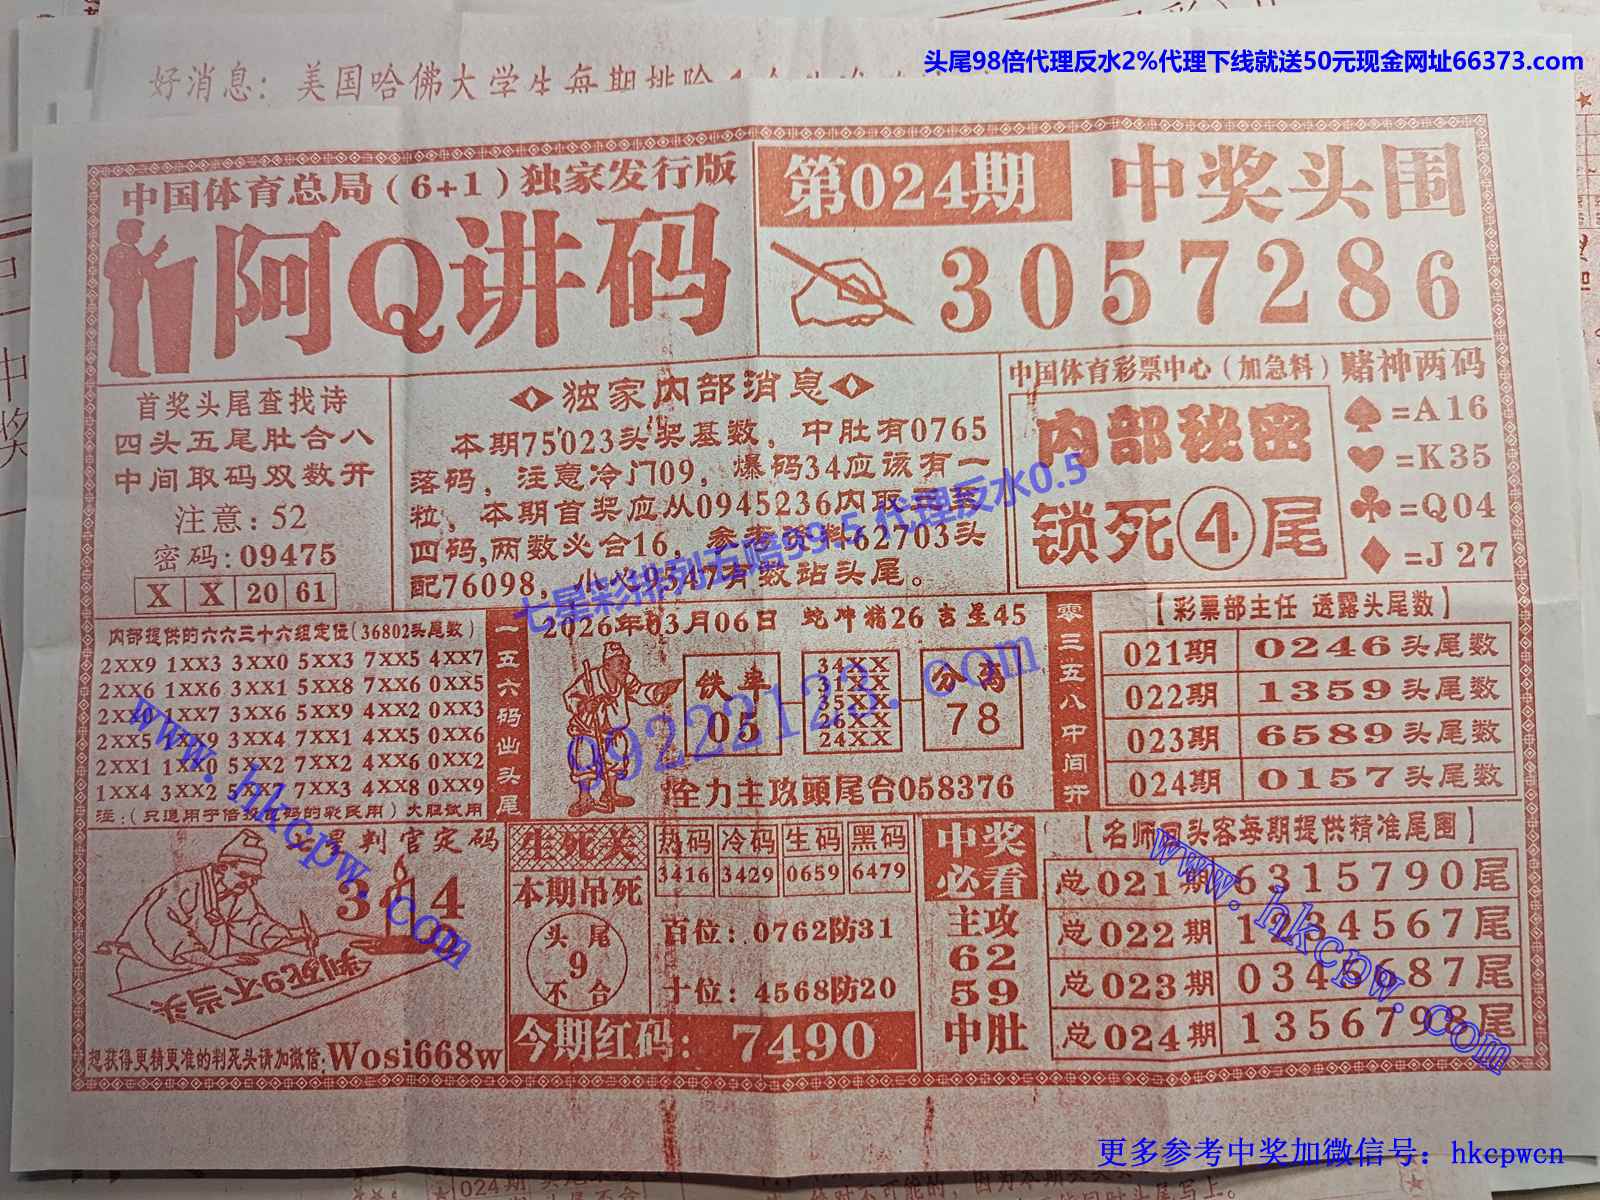 头尾98倍代理反水2%代理下线就送50元现金网址66373.com
好消息：美国哈佛大学生每期排除
中国体育总局(6+1)独家发行版
阿Q讲码
第024期
中奖头围
3057286
首奖头尾查找诗
四头五尾肚合八
中间取码双数开
注意:52
密码:09475
X X 20 61
独家内部消息
本期75023头奖基数，中肚有0765
落码，注意冷门09，爆码34应该有一
粒，本期首奖应从0945236内取三至
四码,两数必合16，参考资料62703头
配76098，小心9547有数站头尾。
中国体育彩票中心(加急料)
内部秘密
锁死④尾
赌神两码
♠=A16
♥=K35
♣=Q04
♦=J27
内部提供的六六三十六组定位(36802头尾数)
2XX9 1XX3 3XX0 5XX3 7XX5 4XX7
2XX6 1XX6 3XX1 5XX8 7XX6 0XX5
2XX0 1XX7 3XX6 5XX9 4XX2 0XX3
2XX5 1XX9 3XX4 7XX1 4XX5 0XX6
2XX1 1XX0 5XX2 7XX2 4XX6 0XX2
1XX4 3XX2 5XX7 7XX3 4XX8 0XX9
注:(只适用于倍投位码的彩民用)大胆试用
一五六码出头尾
2026年03月06日 蛇冲猪26 吉星45
铁率
05
34XX
31XX
35XX
26XX
24XX
分离
78
全力主攻頭尾合058376
零三五八中间开
【彩票部主任 透露头尾数】
021期 0246头尾数
022期 1359头尾数
023期 6589头尾数
024期 0157头尾数
判官定码
3 4
判死9不当头
想获得更精更准的判死头请加微信:Wosi668w
生死关
本期吊死
头尾
9
不合
热码 冷码 生码 黑码
3416 3429 0659 6479
百位：0762防31
十位：4568防20
今期红码：7490
中奖
必看
主攻
62
59
中肚
【名师回头客每期提供精准尾围】
总021期 6315790尾
总022期 1234567尾
总023期 0345687尾
总024期 1356798尾
七星彩排列五赔99.5 代理反水0.5
99222123.com
www.hkcpw.com
www.hkcpw.com
更多参考中奖加微信号：hkcpwcn